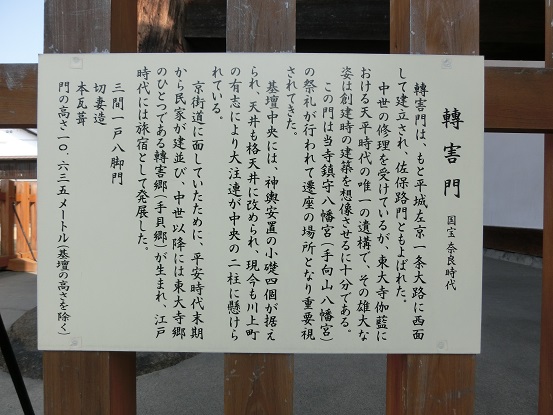 轉害門 国宝 奈良時代
轉害門は、もと平城左京一条大路に西面
して建立され、佐保路門ともよばれた。
中世の修理を受けているが、東大寺伽藍に
おける天平時代の唯一の遺構で、その雄大な
姿は創建時の建築を想像させるに十分である。
この門は当寺鎮守八幡宮(手向山八幡宮)
の祭礼が行われて遷座の場所となり重要視
されてきた。
基壇中央には、神輿安置の小礎四個が据え
られ、天井も格天井に改められ、現今も川上町
の有志により大注連が中央の二柱に懸けら
れている。
京街道に面していたために、平安時代末期
から民家が建並び、中世以降には東大寺郷
のひとつである轉害郷(手貝郷)が生まれ、江戸
時代には旅宿として発展した。
三間一戸八脚門
切妻造
本瓦葺
門の高さ一〇、六三五メートル(基壇の高さを除く)